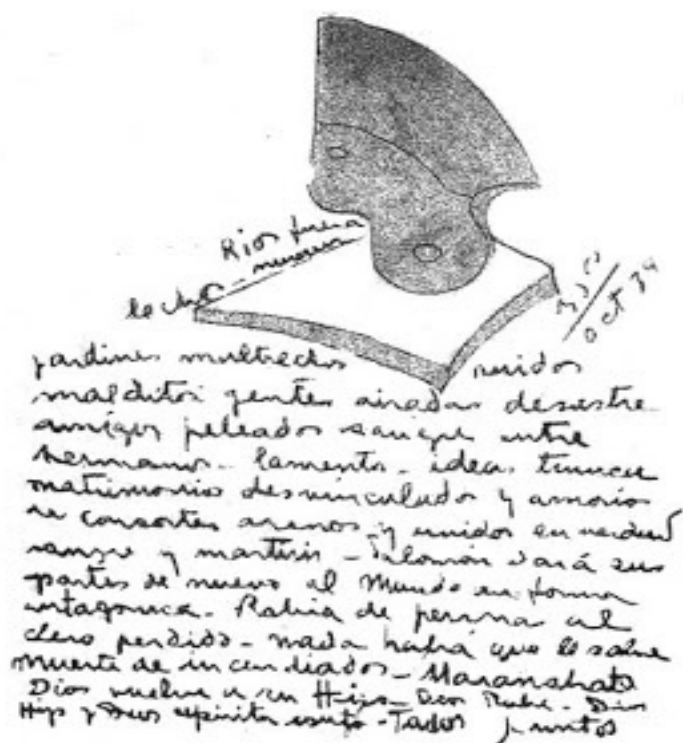 Rios fuera
lecho - mueren
oct 34
jardines maltrechos ruidos
malditos gentes airadas desastre
amigos peleados sangre entre
hermanos - lamentos - ideas truncas
matrimonios desvinculados y amorios
consortes y unidos en
sangre y martirio - Salomón dará sus
partes de nuevo al Mundo en forma
antagonica - Rabia de al
clero perdido - nada habrá que lo salve
muerte de incendiados - Maranahata
Dios vuelve a su Hijo - Dios Padre - Dios
Hijo y Dios espiritu - Todos juntos